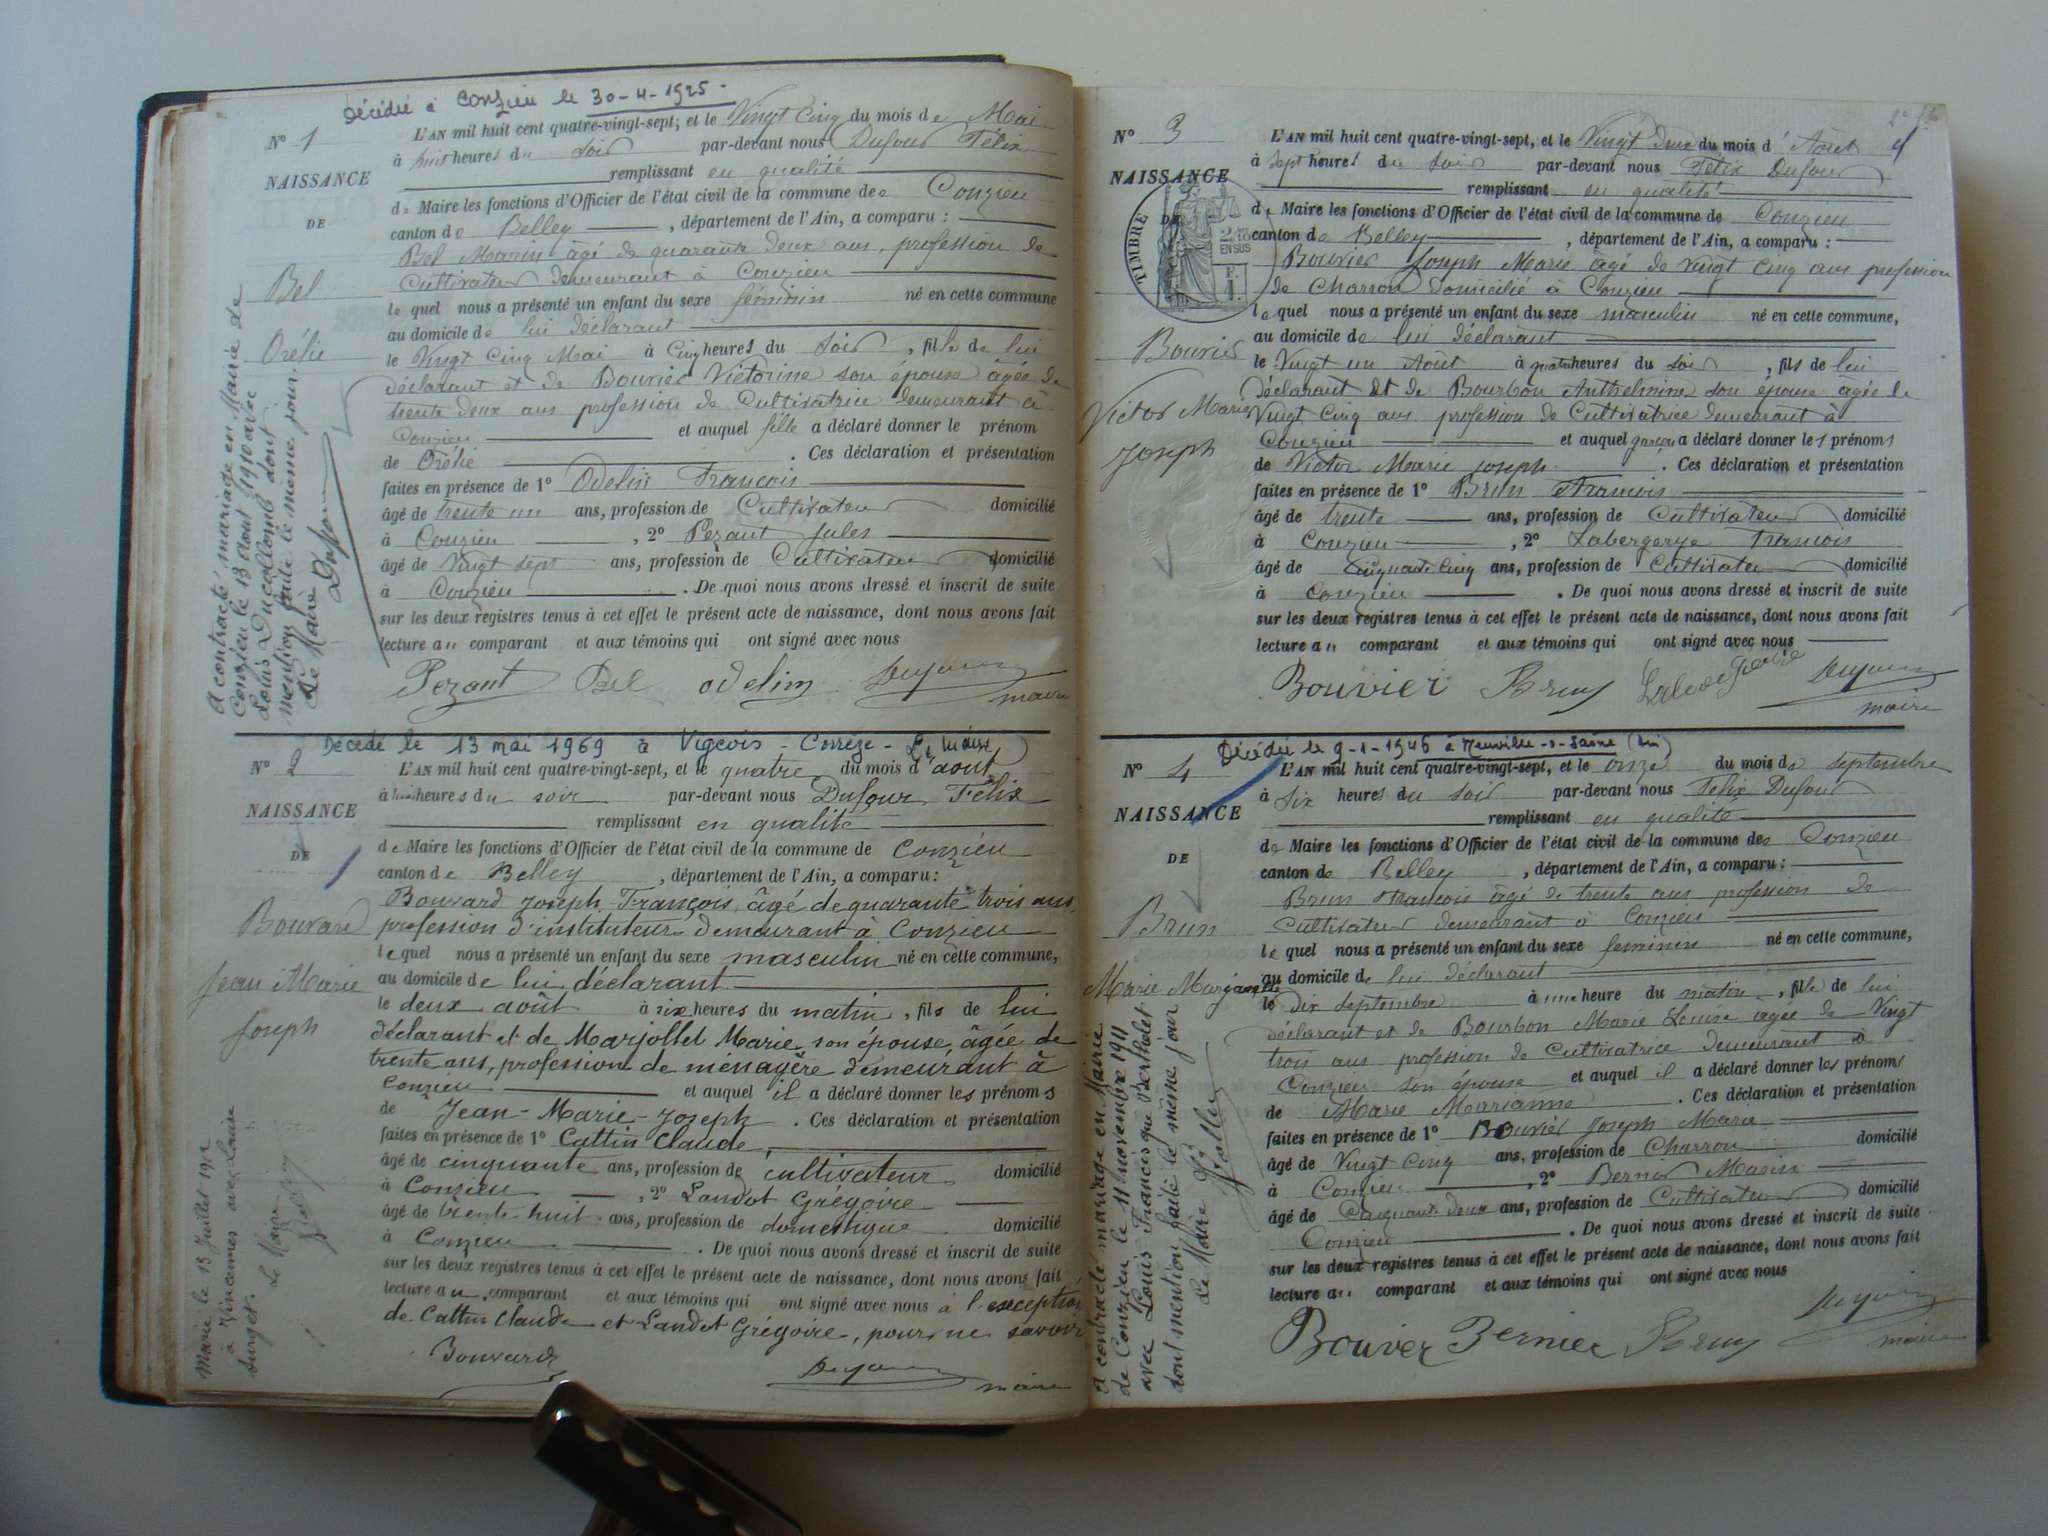 Décédée à Conzieu le 30-4-1925.
N° 1
NAISSANCE
DE
Bel
Orélie
L'AN mil huit cent quatre-vingt-sept; et le Vingt Cinq du mois de Mai
à huit heures du soir par-devant nous Dufour Félix
remplissant en qualité
de Maire les fonctions d'Officier de l'état civil de la commune de Conzieu
canton de Belley, département de l'Ain, a comparu :
Bel Marin âgé de quarante deux ans, profession de
Cultivateur demeurant à Conzieu
lequel nous a présenté un enfant du sexe féminin né en cette commune
au domicile de lui déclarant
le Vingt Cinq Mai à Cinq heures du soir, fille de lui
déclarant et de Bouvier Victorine son épouse âgée de
trente deux ans profession de Cultivatrice demeurant à
Conzieu et auquel fille a déclaré donner le prénom
de Orélie. Ces déclaration et présentation
faites en présence de 1° Odelin Francois
âgé de trente un ans, profession de Cultivateur domicilié
à Conzieu, 2° Pezant Jules
âgé de Vingt sept ans, profession de Cultivateur domicilié
à Conzieu. De quoi nous avons dressé et inscrit de suite
sur les deux registres tenus à cet effet le présent acte de naissance, dont nous avons fait
lecture au comparant et aux témoins qui ont signé avec nous
Pezant Bel Odelin
maire
A contracté mariage en Mairie de
Conzieu le 13 août 1910 avec
Louis Ducollomb dont
mention faite le même jour.
Le Maire Dufour
Décédé le 13 mai 1969 à Vigeois - Corrèze - Le Maire
N° 2
NAISSANCE
DE
Bouvard
Jean Marie
Joseph
L'AN mil huit cent quatre-vingt-sept, et le quatre du mois d'août
à heures du soir par-devant nous Dufour Félix
remplissant en qualité
de Maire les fonctions d'Officier de l'état civil de la commune de Conzieu
canton de Belley, département de l'Ain, a comparu :
Bouvard Joseph François, âgé de quarante-trois ans,
profession d'instituteur demeurant à Conzieu
lequel nous a présenté un enfant du sexe masculin né en cette commune,
au domicile de lui déclarant
le deux août à six heures du matin, fils de lui
déclarant et de Marjollet Marie son épouse, âgée de
trente ans, profession de ménagère demeurant à
Conzieu et auquel il a déclaré donner les prénoms
de Jean-Marie-Joseph. Ces déclaration et présentation
faites en présence de 1° Cattin Claude,
âgé de cinquante ans, profession de cultivateur domicilié
à Conzieu, 2° Landot Grégoire
âgé de trente-huit ans, profession de domestique domicilié
à Conzieu. De quoi nous avons dressé et inscrit de suite
sur les deux registres tenus à cet effet le présent acte de naissance, dont nous avons fait
lecture au comparant et aux témoins qui ont signé avec nous à l'exception
de Cattin Claude et Landot Grégoire, pour ne savoir
Bouvard
maire
Marié le 13 Juillet 1912
à Vincennes avec Laire
Surget.
Le Maire
N° 3
NAISSANCE
DE
TIMBRE
2/10
EN SUS
Bouvier
Victor Marie
Joseph
4
L'AN mil huit cent quatre-vingt-sept, et le Vingt Deux du mois d'Août
à sept heures du soir par-devant nous Félix Dufour
remplissant en qualité
de Maire les fonctions d'Officier de l'état civil de la commune de Conzieu
canton de Belley, département de l'Ain, a comparu :
Bouvier Joseph Marie âgé de vingt cinq ans profession
de Charron domicilié à Conzieu
lequel nous a présenté un enfant du sexe masculin né en cette commune,
au domicile de lui déclarant
le Vingt un Août à quatre heures du soir, fils de lui
déclarant et de Bourbon Anthelmine son épouse âgée de
Vingt Cinq ans profession de Cultivatrice demeurant à
Conzieu et auquel garçon a déclaré donner les prénoms
de Victor Marie Joseph. Ces déclaration et présentation
faites en présence de 1° Brun Francois
âgé de trente ans, profession de Cultivateur domicilié
à Conzieu, 2° Labergerye Francois
âgé de Cinquante Cinq ans, profession de Cultivateur domicilié
à Conzieu. De quoi nous avons dressé et inscrit de suite
sur les deux registres tenus à cet effet le présent acte de naissance, dont nous avons fait
lecture au comparant et aux témoins qui ont signé avec nous
Bouvier Brun
maire
Décédée le 9-1-1946 à Neuville-s-Saône (Ain)
N° 4
NAISSANCE
DE
Brun
Marie Marianne
L'AN mil huit cent quatre-vingt-sept, et le onze du mois de septembre
à six heures du soir par-devant nous Felix Dufour
remplissant en qualité
de Maire les fonctions d'Officier de l'état civil de la commune de Conzieu
canton de Belley, département de l'Ain, a comparu :
Brun Francois âgé de trente ans profession de
Cultivateur demeurant à Conzieu
lequel nous a présenté un enfant du sexe feminin né en cette commune,
au domicile de lui déclarant
le dix septembre à une heure du matin, fille de lui
déclarant et de Bourbon Marie Louise âgée de Vingt
trois ans profession de Cultivatrice demeurant à
Conzieu son épouse et auquel il a déclaré donner les prénoms
de Marie Marianne. Ces déclaration et présentation
faites en présence de 1° Bouvier Joseph Marie
âgé de Vingt Cinq ans, profession de Charron domicilié
à Conzieu, 2° Bernier Marin
âgé de Cinquante deux ans, profession de Cultivateur domicilié
Conzieu. De quoi nous avons dressé et inscrit de suite
sur les deux registres tenus à cet effet le présent acte de naissance, dont nous avons fait
lecture au comparant et aux témoins qui ont signé avec nous
Bouvier Bernier Brun
maire
A contracté mariage en Mairie
de Conzieu le 11 novembre 1911
avec Louis Francisque Berthelet
dont mention faite le même jour
Le Maire